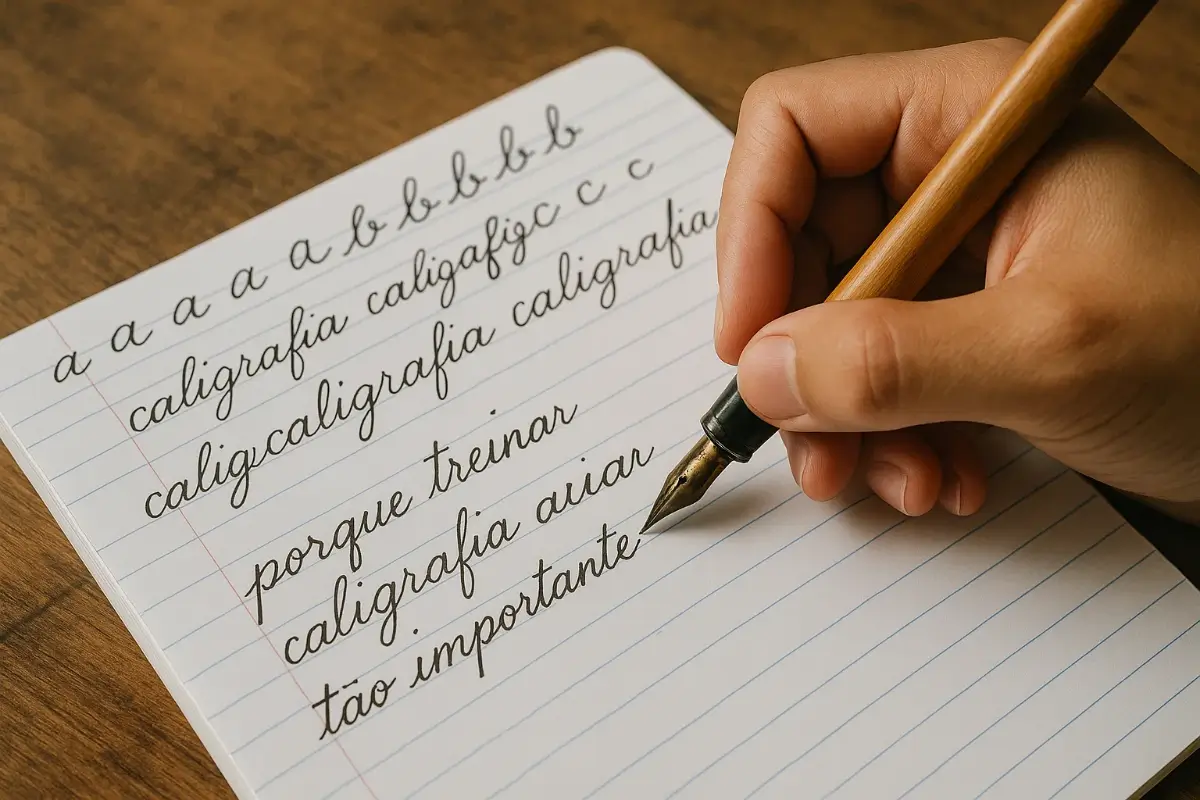 a a a a b b b b b
caligrafia caligafigc c c
caligcaligrafia caligrafia
porque treinar
caligrafia auiar
tão importante